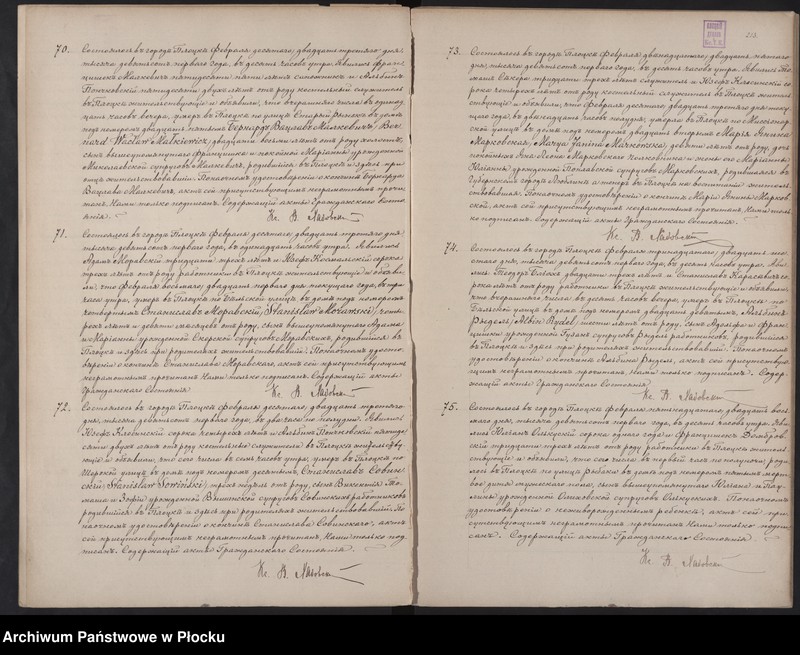 70. Состоялось въ городѣ Плоцкѣ Февраля десятаго, двадцать третьяго дня,
тысяча девятьсотъ перваго года, въ десять часовъ утра. Явились Фран
цишекъ Малкевичъ пятидесяти пяти лѣтъ и Альбинъ
Понковскій пятидесяти двухъ лѣтъ отъ роду костельный служитель
въ Плоцкѣ жительствующіе и объявили, что вчерашняго числа въ
часовъ вечера, умеръ въ Плоцкѣ на улицѣ Старый Рынокъ въ домѣ
подъ номеромъ двадцать пятымъ Бернардъ Вацлавъ Малкевичъ, /Ber
nard Wacław Malkiewicz/, двадцати восьми лѣтъ отъ роду холостъ,
сынъ вышеупомянутаго Францишка и покойной Маріанны урожденной
супруговъ Малкевичей, родившійся въ Плоцкѣ и здѣсь при
отцѣ жительствовавшій. По наочномъ удостовѣреніи о кончинѣ Бернарда
Вацлава Малкевича, актъ сей присутствующимъ неграмотнымъ прочи
танъ, Нами только подписанъ. Содержащій акты Гражданскаго Состо
янія.
Кс. В.
71. Состоялось въ городѣ Плоцкѣ Февраля десятаго, двадцать третьяго дня
тысяча девятьсотъ перваго года, въ одинадцать часовъ утра. Явились
Адамъ Моравскій тридцати трехъ лѣтъ и Юзефъ сорока
трехъ лѣтъ отъ роду работники въ Плоцкѣ жительствующіе и объяви
ли, что Февраля восьмаго, двадцать перваго дня текущаго года, въ три
часа утра, умеръ въ Плоцкѣ на улицѣ въ домѣ подъ номеромъ
четвертымъ Станиславъ Моравскій, /Stanisław Morawski/, четы
рехъ лѣтъ и девяти мѣсяцевъ отъ роду, сынъ вышеупомянутаго Адама
и Маріанны урожденной супруговъ Моравскихъ, родившійся въ
Плоцкѣ и здѣсь при родителяхъ жительствовавшій. По наочномъ удосто
вѣреніи о кончинѣ Станислава Моравскаго, актъ сей присутствующимъ
неграмотнымъ прочитанъ, Нами только подписанъ. Содержащій акты
Гражданскаго Состоянія
Кс. В.
72. Состоялось въ городѣ Плоцкѣ Февраля десятаго, двадцать третьяго
дня, тысяча девятьсотъ перваго года, въ два часа по полудни. Явились
Юзефъ Клосинскій сорока четырехъ лѣтъ и Альбинъ Понковскій пятиде
сяти двухъ лѣтъ отъ роду костельные служители въ Плоцкѣ жительству
ющіе и объявили, что сего числа въ семь часовъ утра, умеръ въ Плоцкѣ на
улицѣ въ домѣ подъ номеромъ десятымъ Станиславъ Совин
скій, /Stanisław Sowiński/, трехъ недѣль отъ роду, сынъ Викентія То
маша и Зофіи урожденной супруговъ Совинскихъ работниковъ
родившійся въ Плоцкѣ и здѣсь при родителяхъ жительствовавшій. По
наочномъ удостовѣреніи о кончинѣ Станислава Совинскаго, актъ
сей присутствующимъ неграмотнымъ прочитанъ, Нами только под
писанъ. Содержащій акты Гражданскаго Состоянія.
Кс. В.
73. Состоялось въ городѣ Плоцкѣ Февраля двѣнадцатаго, двадцать пятаго
дня, тысяча девятьсотъ перваго года, въ десять часовъ утра. Явились
тридцати трехъ лѣтъ служитель и Юзефъ Клосинскій со
рока четырехъ лѣтъ отъ роду костельный служитель въ Плоцкѣ житель
ствующіе и объявили, что Февраля десятаго двадцать третьяго дня теку
щаго года, въ двѣнадцать часовъ полудня, умерла въ Плоцкѣ на
улицѣ въ домѣ подъ номеромъ двадцать вторымъ Марія Янина
Марковская, /Marya Janina Markowska/, девяти лѣтъ отъ роду, дочь
покойныхъ Яна Леона Марковскаго и жены его Маріанны
Юзефы урожденной супруговъ Марковскихъ, родившаяся въ
Губернскомъ городѣ Люблинѣ а теперь въ Плоцкѣ на воспитаніи житель
ствовавшая. По наочномъ удостовѣреніи о кончинѣ Маріи Янины Марков
ской, актъ сей присутствующимъ неграмотнымъ прочитанъ, Нами толь
ко подписанъ. Содержащій акты Гражданскаго Состоянія.
Кс. В.
74. Состоялось въ городѣ Плоцкѣ Февраля тринадцатаго, двадцать ше
стаго дня, тысяча девятьсотъ перваго года, въ десять часовъ утра. Яви
лись Теодоръ двадцати трехъ лѣтъ и Станиславъ со
рока лѣтъ отъ роду работники въ Плоцкѣ жительствующіе и объявили,
что вчерашняго числа въ десять часовъ вечера, умеръ въ Плоцкѣ по
улицѣ въ домѣ подъ номеромъ двадцать девятымъ, Альбинъ
Рыдель, /Albin Rydel/, шести лѣтъ отъ роду, сынъ Адольфа и Фран
цишки урожденной супруговъ Рыдель работниковъ, родившійся
въ Плоцкѣ и здѣсь при родителяхъ жительствовавшій. По наочномъ
удостовѣреніи о кончинѣ Альбина Рыделя, актъ сей присутствую
щимъ неграмотнымъ прочитанъ, Нами только подписанъ. Содер
жащій акты Гражданскаго Состоянія
Кс. В.
75. Состоялось въ городѣ Плоцкѣ Февраля пятнадцатаго, двадцать вось
маго дня, тысяча девятьсотъ перваго года, въ десять часовъ утра. Яви
лись Юліанъ сорока одного года и Францишекъ Домбров
скій тридцати лѣтъ отъ роду работники въ Плоцкѣ житель
ствующіе и объявили, что сего числа, въ первый часъ по полуночи, роди
лось въ Плоцкѣ по улицѣ Рыбаки въ домѣ подъ номеромъ пятымъ мерт
вое дитя мужескаго пола, сынъ вышеупомянутаго Юліана и Пау
лины урожденной супруговъ. По наочномъ
удостовѣреніи о неживорожденномъ ребенкѣ, актъ сей при
сутствующимъ неграмотнымъ прочитанъ, Нами только подпи
санъ. Содержащій акты Гражданскаго Состоянія.
Кс. В.
Archiwum Państwowe w Płocku